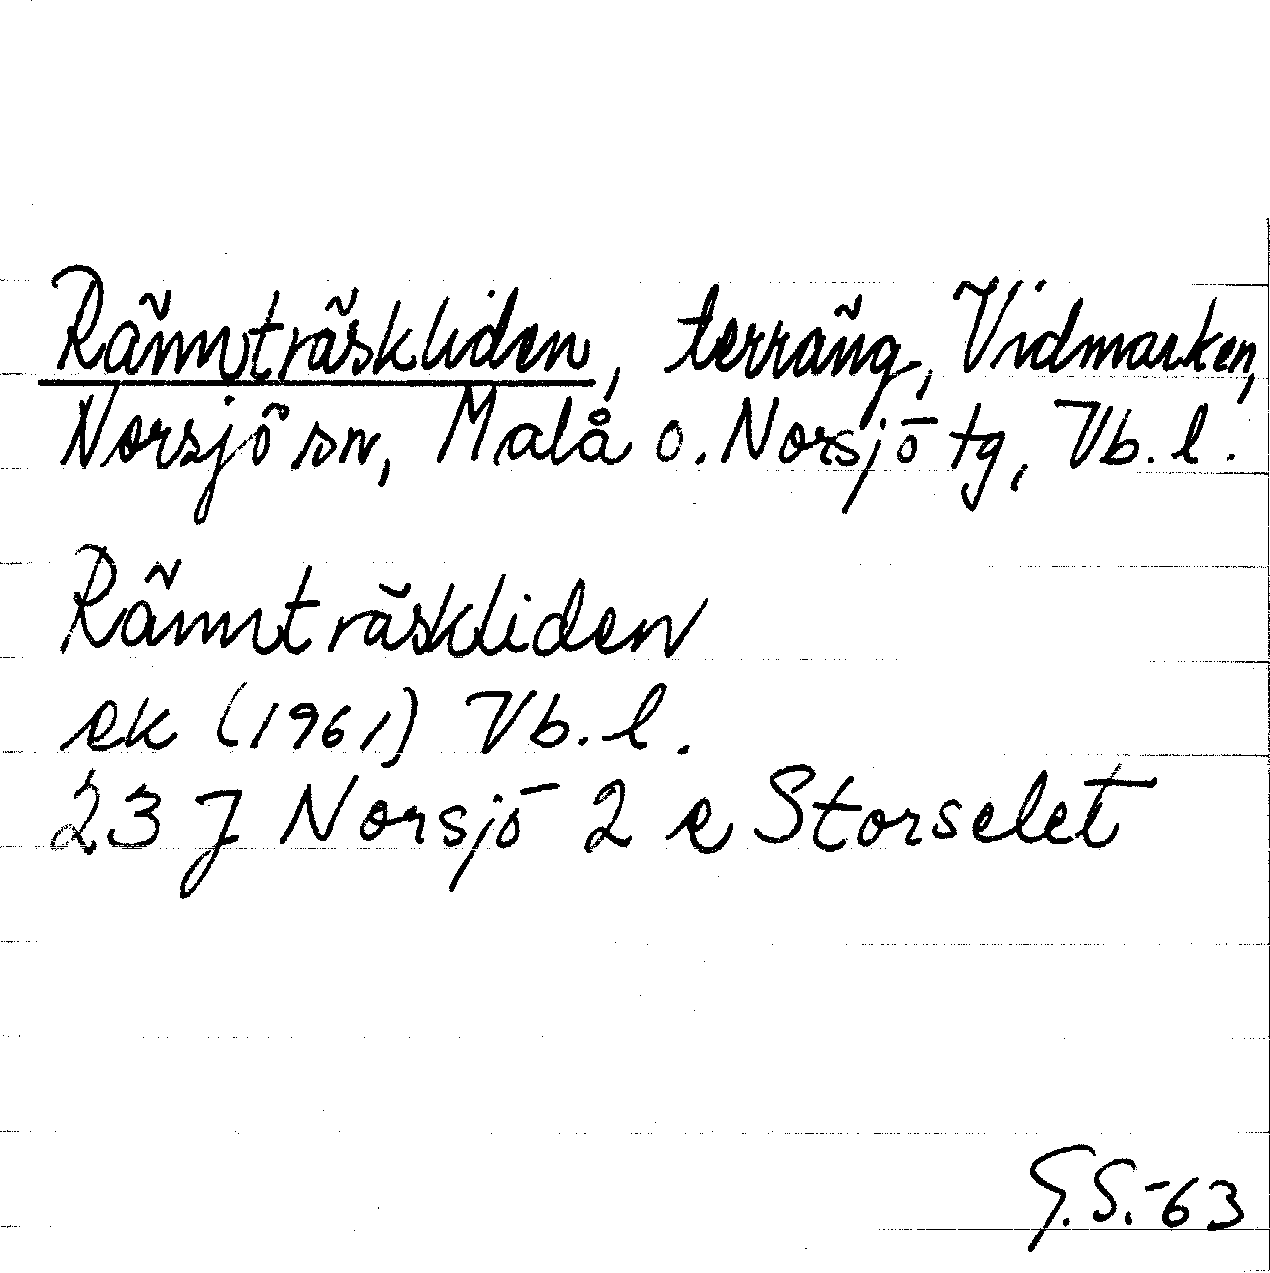 Rännträskliden, terräng, Vidmarken,
Norsjö sn, Malå o. Norsjö tg, Vb. l.
Rännträskliden
ek (1961) Vb. l.
23 J Norsjö 2 e Storselet
G. S. -63